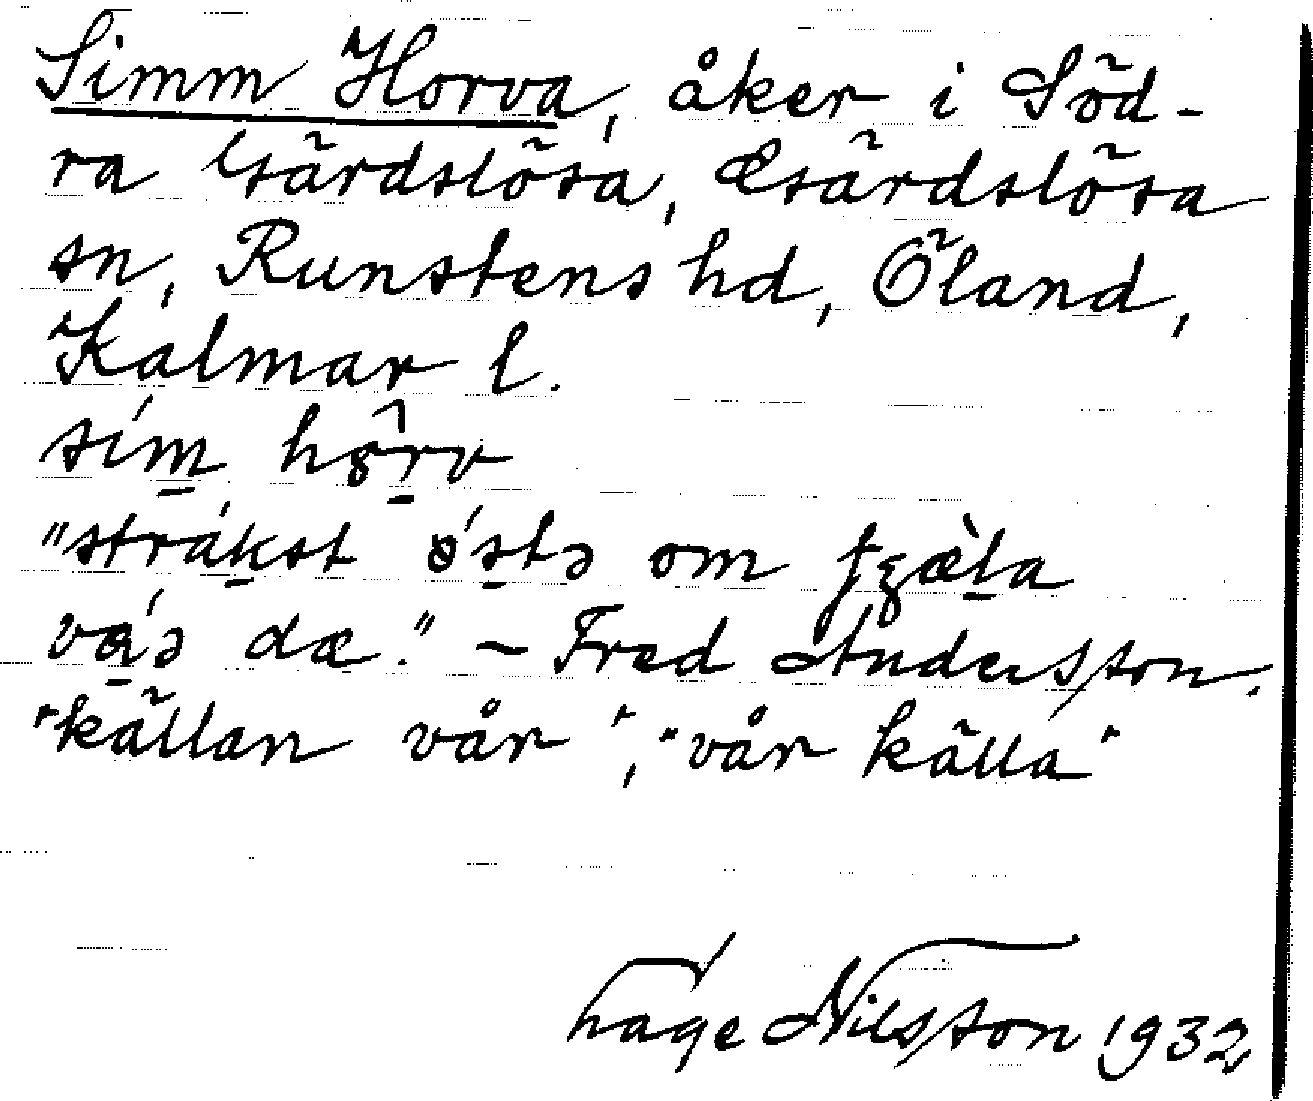 Simm Horva, åker i Söd-
ra Gärdslösa, Gärdslösa
sn, Runstens hd, Öland,
Kalmar l.
sim
"strakst östə om
dæ." – Fred Andersson.
"källan vår", "vår källa"
Thage Nilsson 1932